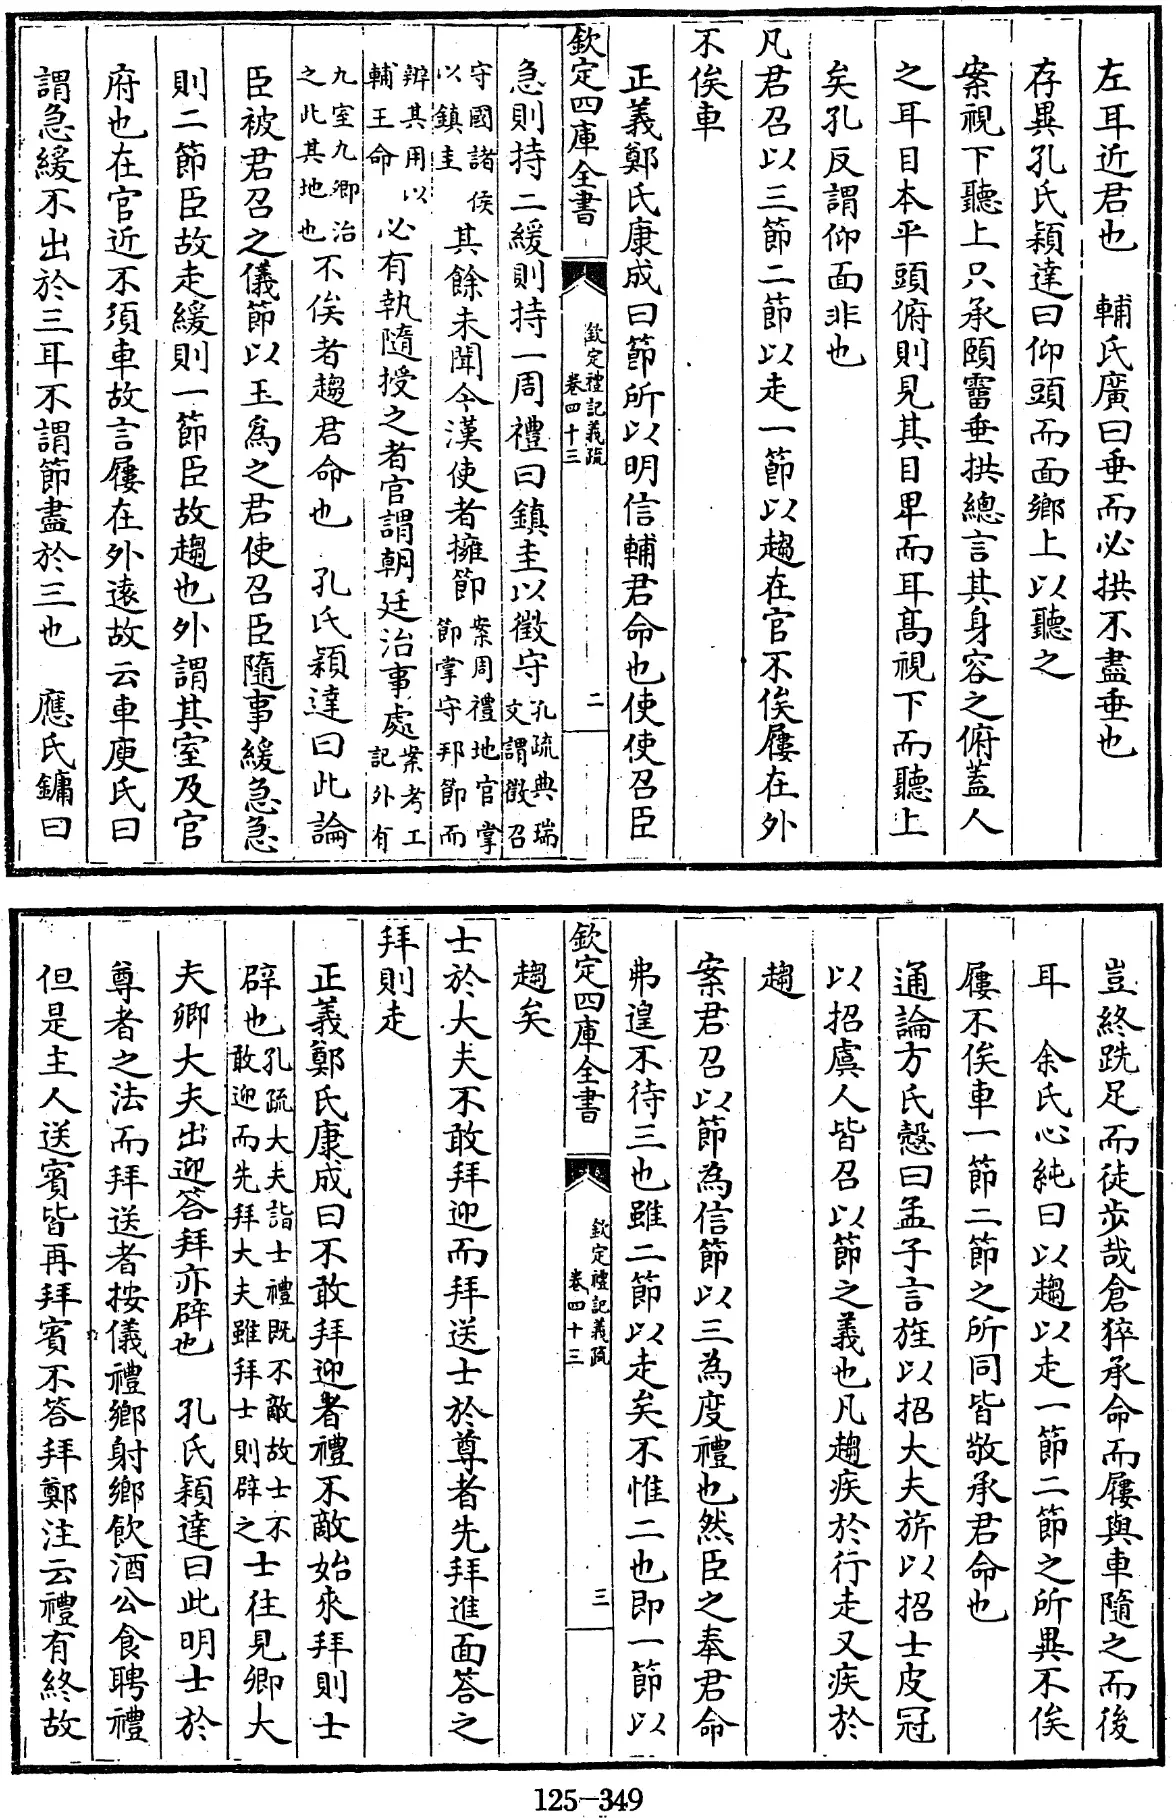 左耳近君也　輔氏廣曰垂而必拱不盡垂也
存異孔氏穎達曰仰頭而面鄉上以聽之
案視下聽上只承頤霤垂拱總言其身容之俯蓋人
之耳目本平頭俯則見其目卑而耳髙視下而聽上
矣孔反謂仰面非也
凡君召以三節二節以走一節以趨在官不俟屨在外
不俟車
正義鄭氏康成曰節所以明信輔君命也使使召臣
欽定四庫全書
欽定禮記義疏
卷四十三
二
急則持二緩則持一周禮曰鎮圭以徵守孔疏典瑞文謂徵召
守國諸侯以鎮圭其餘未聞今漢使者擁節案周禮地官掌節掌守邦節而
辨其用以輔王命必有執隨授之者官謂朝廷治事處案考工記外有
九室九卿治之此其地也不俟者趨君命也　孔氏穎達曰此論
臣被君召之儀節以玉為之君使召臣隨事緩急急
則二節臣故走緩則一節臣故趨也外謂其室及官
府也在官近不須車故言屨在外遠故云車庾氏曰
謂急緩不出於三耳不謂節盡於三也　應氏鏞曰
豈終跣足而徒步哉倉猝承命而屨與車隨之而後
耳　余氏心純曰以趨以走一節二節之所異不俟
屨不俟車一節二節之所同皆敬承君命也
通論方氏慤曰孟子言旌以招大夫旂以招士皮冠
以招虞人皆召以節之義也凡趨疾於行走又疾於
趨
案君召以節為信節以三為度禮也然臣之奉君命
弗遑不待三也雖二節以走矣不惟二也即一節以
欽定四庫全書
欽定禮記義疏
卷四十三
三
趨矣
士於大夫不敢拜迎而拜送士於尊者先拜進面答之
拜則走
正義鄭氏康成曰不敢拜迎者禮不敵始來拜則士
辟也孔疏大夫詣士禮既不敵故士不敢迎而先拜大夫雖拜士則辟之士往見卿大
夫卿大夫出迎答拜亦辟也　孔氏穎達曰此明士於
尊者之法而拜送者按儀禮鄉射鄉飲酒公食聘禮
但是主人送賓皆再拜賓不答拜鄭注云禮有終故
125-349